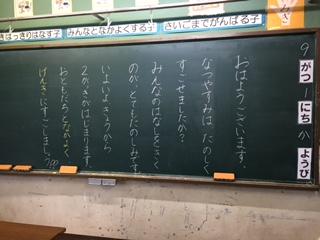 きはっきりはなす子
みんなとなかよくする子
さいごまでがんばる子
9がつ1にちかようび
おはようございます。
なつやすみは、たのしく
すごせましたか？
みんなのはなしをきく
のが、とてもたのしみです。
いよいよきょうから
2がっきがはじまります。
おともだちとなかよく
げんきにすごしましょう